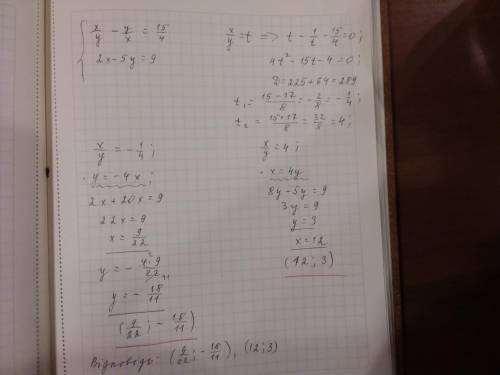 x/y - y/x = 15/4
2x-5y=9
x/y = t => t - 1/t - 15/4 = 0;
4t² - 15t - 4 = 0;
D = 225 + 64 = 289
t₁ = (15-17)/8 = -2/8 = -1/4;
t₂ = (15+17)/8 = 32/8 = 4;
x/y = -1/4;
y = -4x;
2x + 20x = 9
22x = 9
x = 9/22
y = - 4·9/22
y = - 18/11
(9/22; -18/11)
x/y = 4;
x = 4y
8y - 5y = 9
3y = 9
y = 3
x = 12
(12; 3)
Відповідь: (9/22; -18/11), (12; 3)